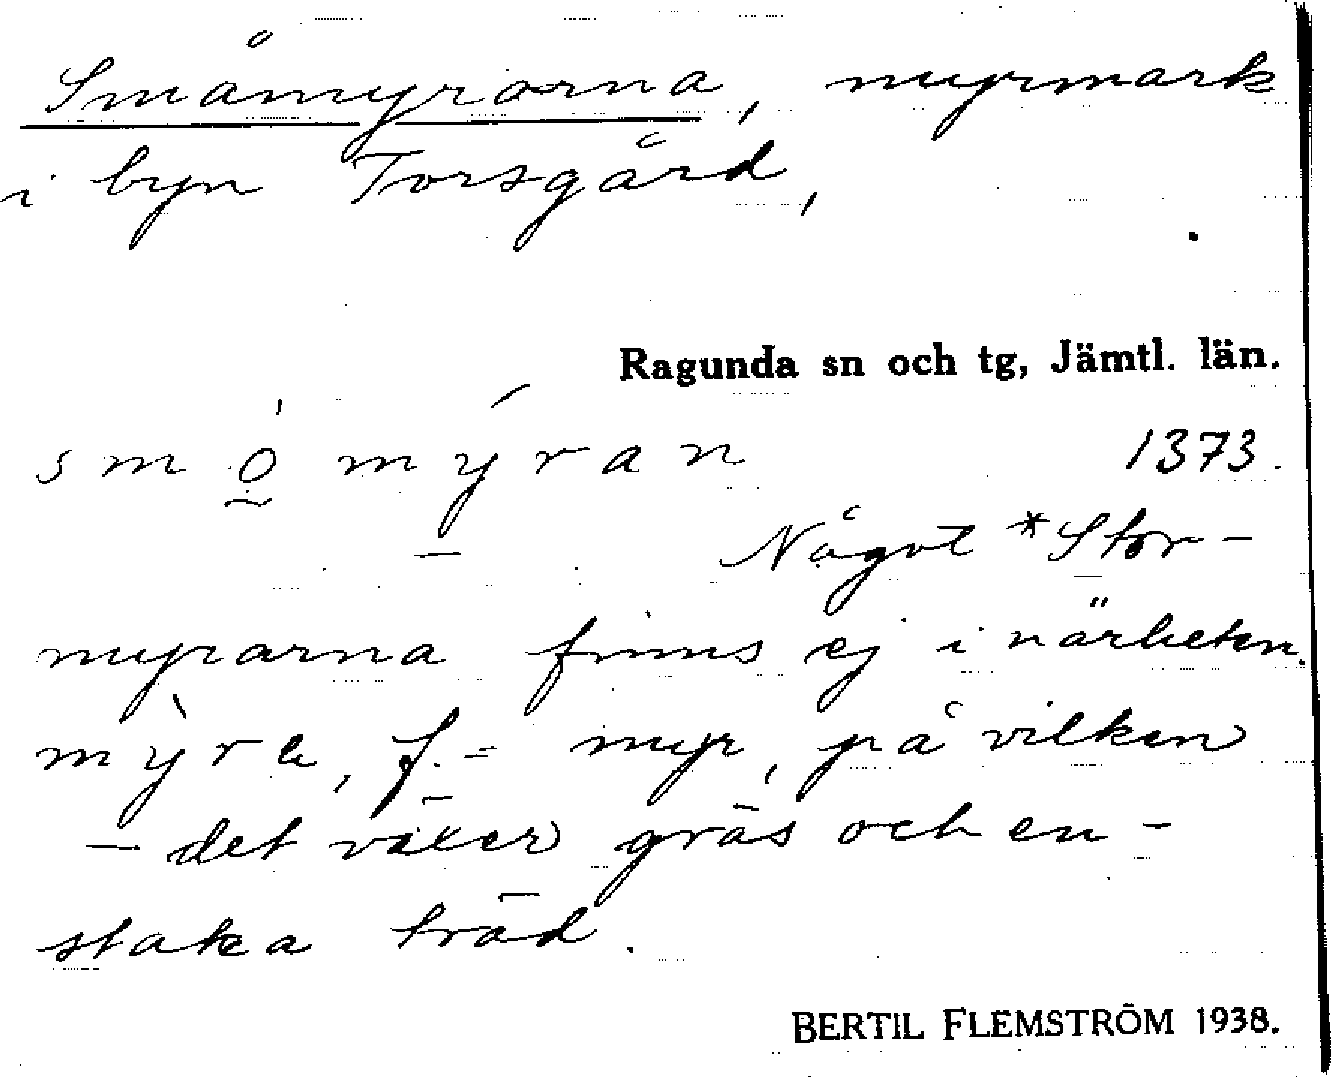 Småmyrorna, myrmark
i byn Torsgård,
Ragunda sn och tg, Jämtl. län.
smo̰mýran 1373.
Något *Stor-
myrarna finns ej i närheten.
mỳra, f. = myr, på vilken
- det växer gräs och en-
staka träd.
BERTIL FLEMSTRÖM 1938.